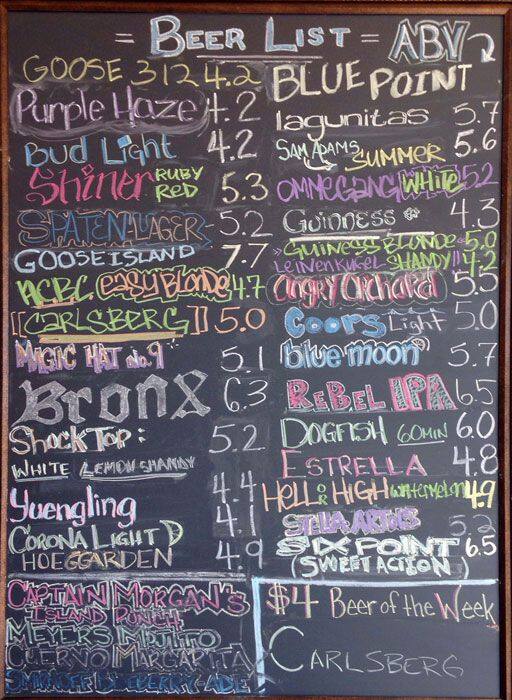 = BEER LIST = ABV
GOOSE 312 4.2
Purple Haze 4.2
Bud Light 4.2
Shiner RUBY RED 5.3
SPATEN LAGER 5.2
GOOSE ISLAND 7.7
ACBC easy Blonde 4.7
[[CARLSBERG]] 5.0
MAGIC HAT no.9 5.1
BRONX 6.3
Shock Top: 5.2
WHITE LEMON SHANDY
4.4
Yuengling 4.1
CORONA LIGHT
HOEGGARDEN 4.9
BLUE POINT
lagunitas 5.7
SAM ADAMS SUMMER 5.6
OMMEGANG WHITE 5.2
Guinness 4.3
"GUINESS BLONDE" 5.0
LEINENKUGEL SHANDY 4.2
angry Orchard 5.5
Coors Light 5.0
blue moon 5.7
REBEL IPA 6.5
DOGFISH 60MIN 6.0
ESTRELLA 4.8
HELL OR HIGH watermelon 4.9
STELLA ARTOIS 5.2
SIXPOINT 6.5
(SWEET ACTION)
CAPTAIN MORGAN'S
ISLAND PUNCH
MEYERS MOJITO
CUERVO MARGARITA
SMIRNOFF BLUEBERRY-ADE
$4 Beer of the Week
CARLSBERG